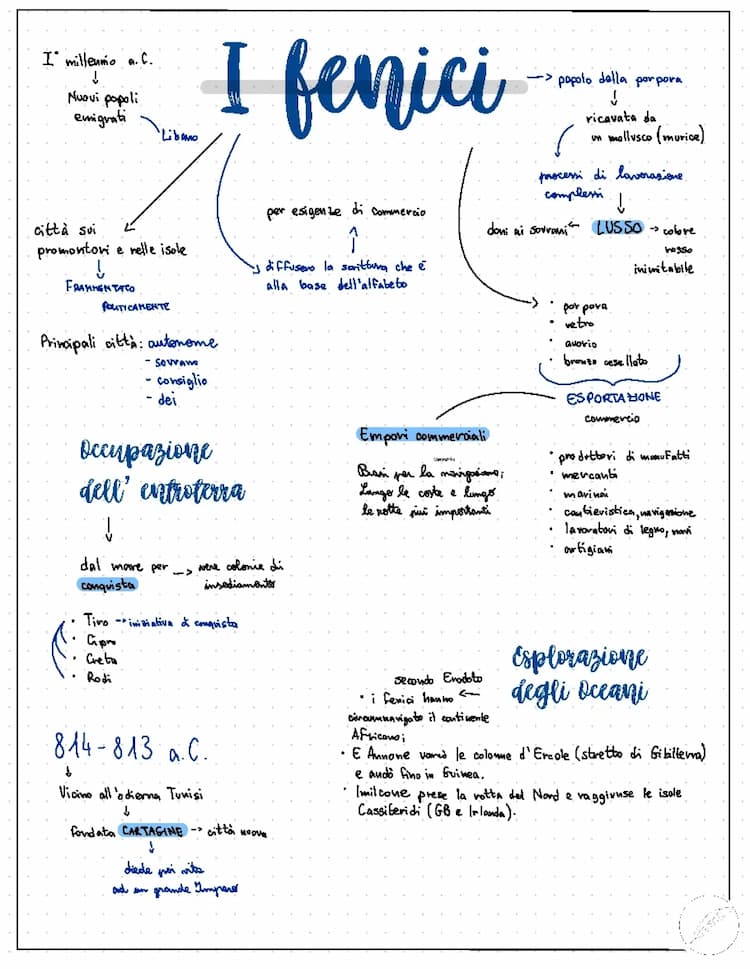 I fenici
I° millennio a.C.
Nuovi popoli
emigrati
Libano
→ popolo della porpora
ricavata da
un mollusco (murice)
processi di lavorazione
complessi
doni ai sovrani ← LUSSO → colore
rosso
inimitabile
città sui
promontori e nelle isole
FRAMMENTATO
POLITICAMENTE
per esigenze di commercio
diffusero la scrittura che è
alla base dell'alfabeto
Principali città: autonome
- sovrano
- consiglio
- dei
• porpora
• vetro
• avorio
• bronzo cesellato
ESPORTAZIONE
commercio
Empori commerciali
Basi per la navigazione;
Lungo le coste e lungo
le rotte più importanti
• produttori di manufatti
• mercanti
• marinai
• cantieristica, navigazione
• lavoratori di legno, navi
• artigiani
Occupazione
dell' entroterra
dal mare per → vere colonie di
conquista insediamento
• Tiro → iniziativa di conquista
• Cipro
• Creta
• Rodi
814-813 a.C.
Vicino all'odierna Tunisi
fondata CARTAGINE → città nuova
diede poi vita
ad un grande Impero
Esplorazione
degli Oceani
secondo Erodoto
• i fenici hanno ←
circumnavigato il continente
Africano;
• E Annone varcò le colonne d'Ercole (stretto di Gibilterra)
e andò fino in Guinea.
• Imilcone prese la rotta del Nord e raggiunse le isole
Cassiteridi (GB e Irlanda).